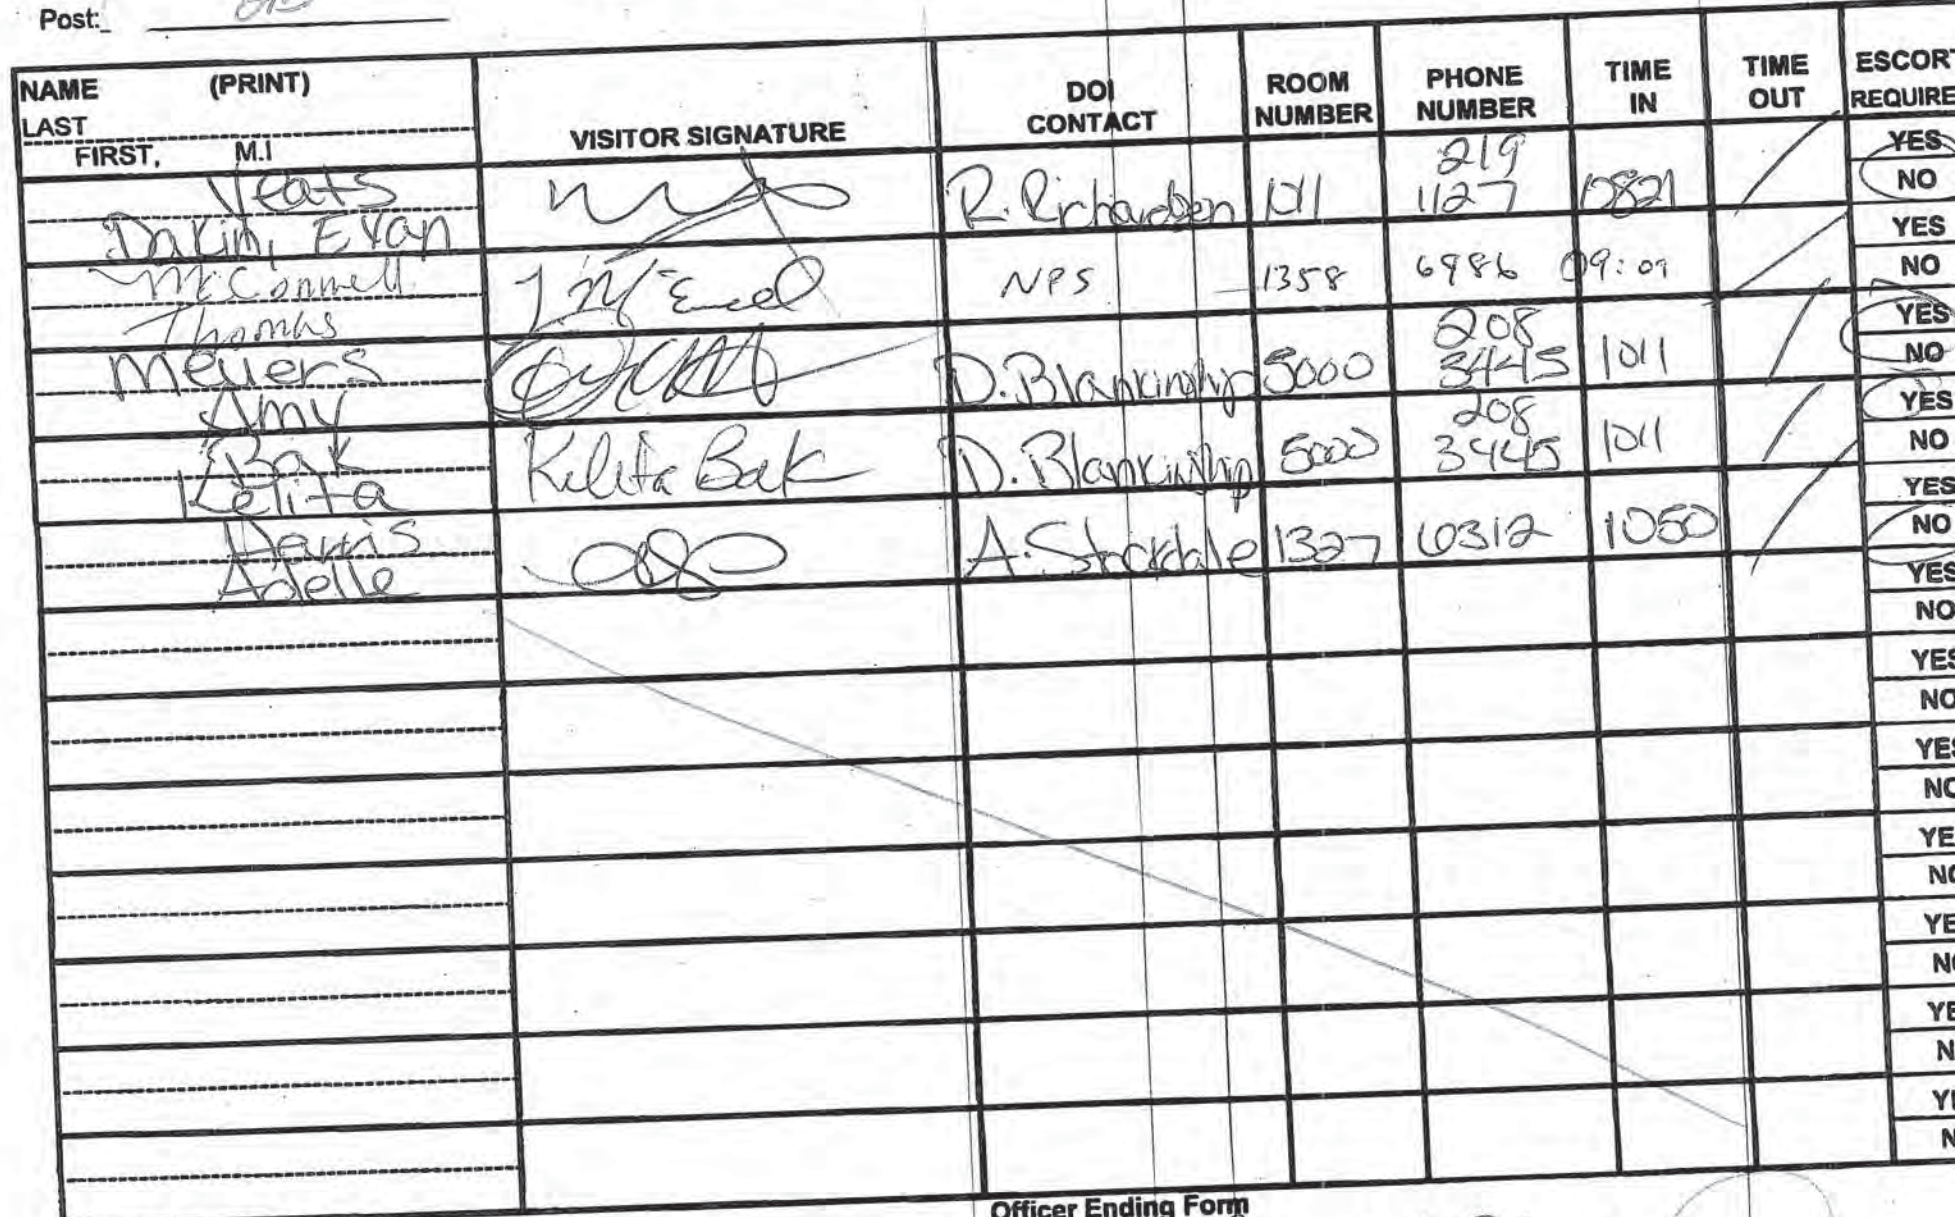 Post:
NAME (PRINT)
LAST
FIRST, M.I
VISITOR SIGNATURE
DOI
CONTACT
ROOM
NUMBER
PHONE
NUMBER
TIME
IN
TIME
OUT
ESCORT
REQUIRE
Yeats
Dakin, Evan
R. Richardson 1011 219
1127
YES
NO
McConnell
Thomas
NPS 1358 6986 09:09
YES
NO
Meyers
Amy
D. Blankinship 5000 208
3445 1011
YES
NO
Bak
Kelita
Kelita Bak
D. Blankinship 5000 208
3445 1011
YES
NO
Harris
Adelle
A. Stockdale 1327 6312 1050
YES
NO
YES
NO
YES
NO
YES
NO
YE
NO
YE
NO
YE
N
YE
N
Officer Ending Form